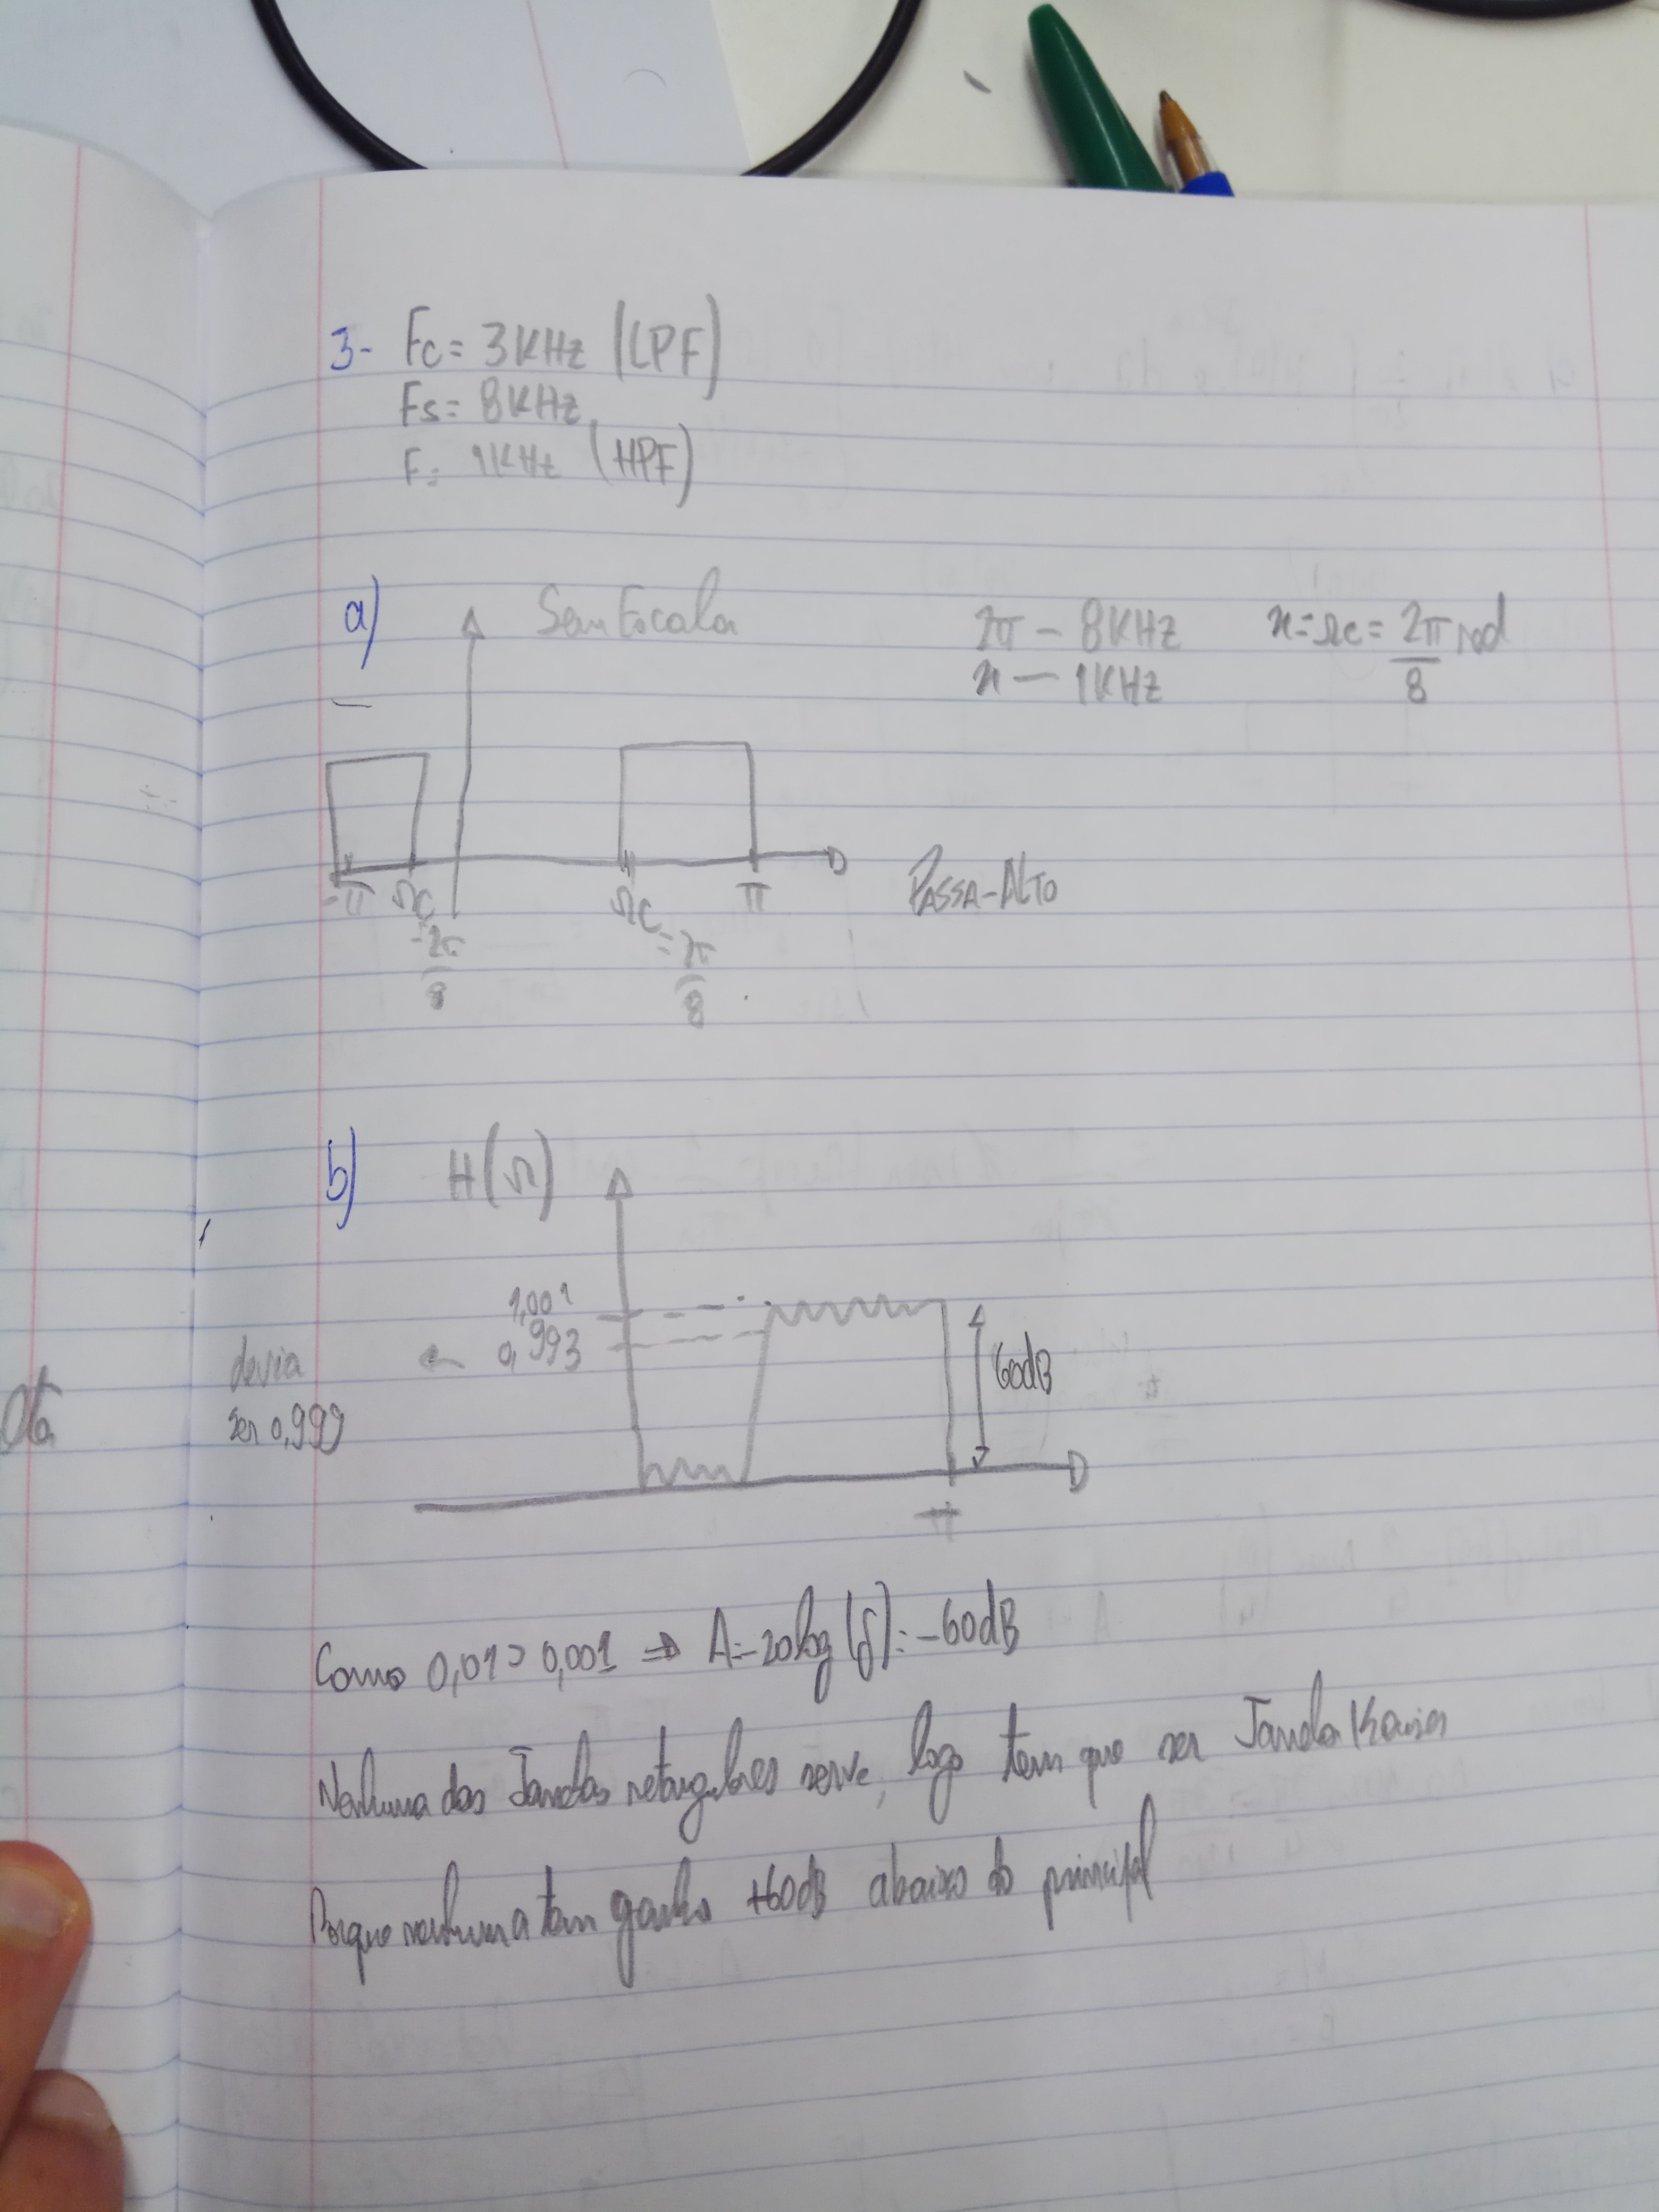 3- Fc = 3KHz (LPF)
Fs = 8KHz
F = 1KHz (HPF)
a) Sem Escala
2π — 8KHz
x — 1KHz
x = Ωc = 2π/8 rad
-π Ωc Ωc π
-2π/8 = 2π/8
PASSA-ALTO
b) H(Ω)
1,001
0,993
devia
ser 0,999
60dB
π
Ota
Como 0,01 > 0,001 ⇒ A = 20log(δ) = -60dB
Nenhuma das Janelas retangulares serve, logo tem que ser Janela Kaiser
Porque nenhuma tem ganho +60dB abaixo do principal